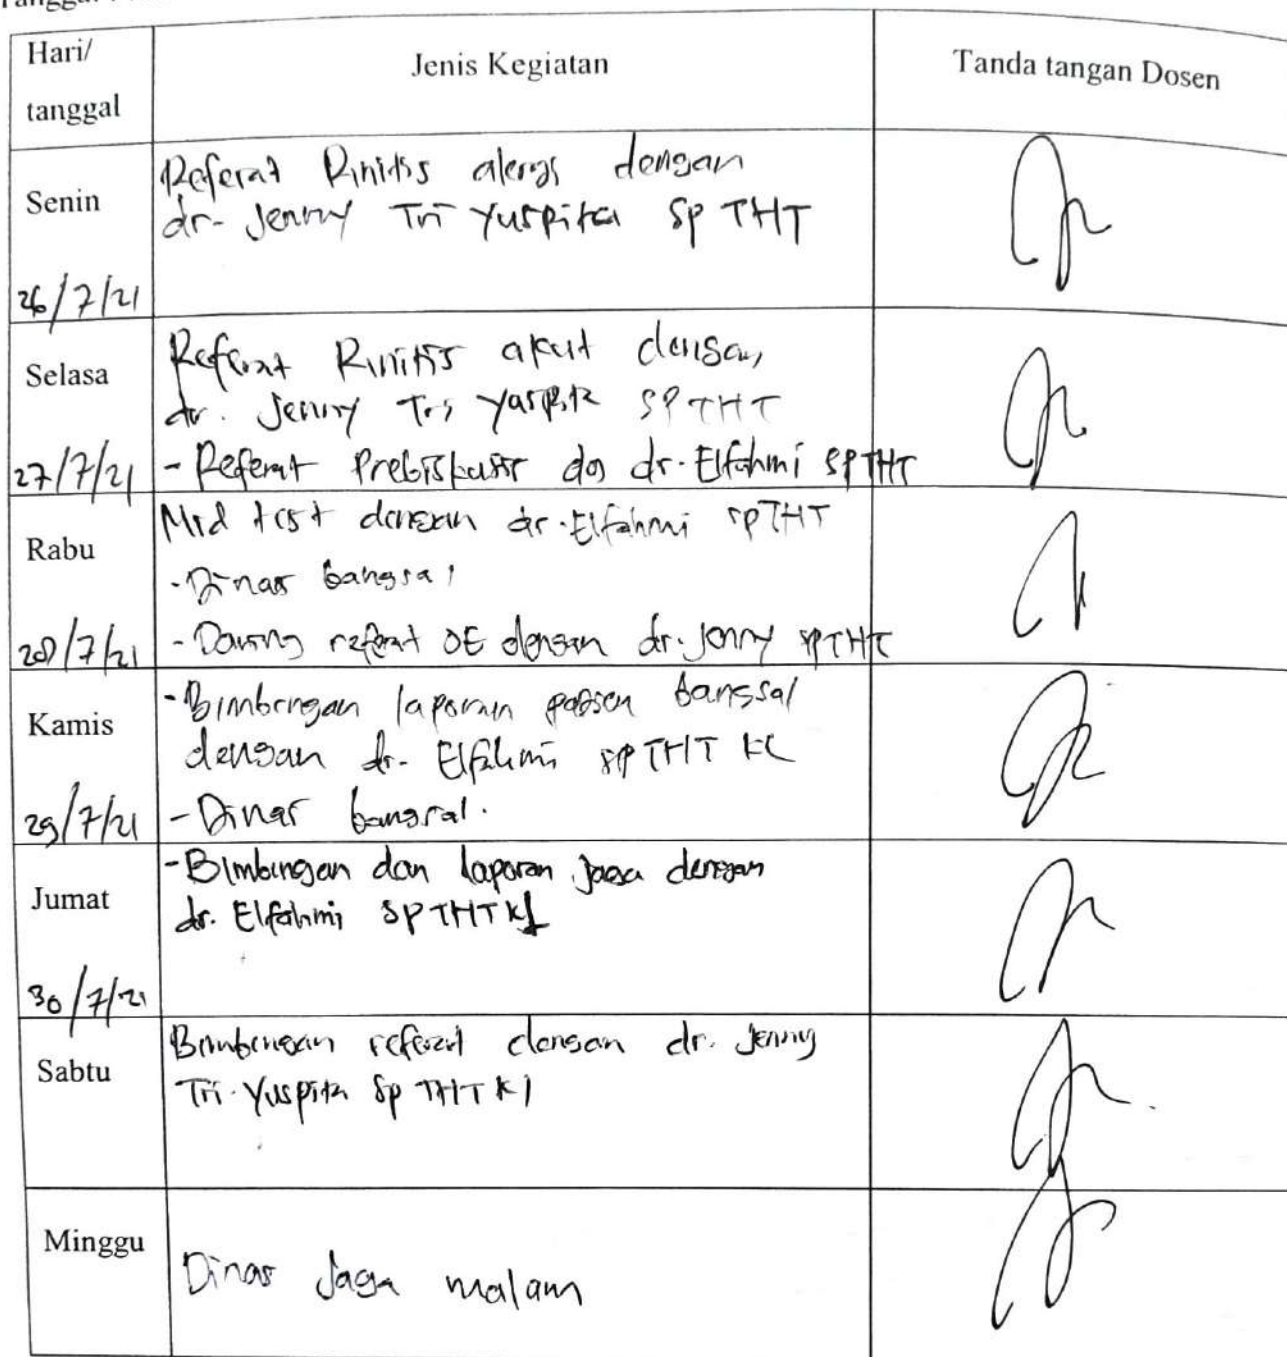 Hari/
tanggal
Jenis Kegiatan
Tanda tangan Dosen
Senin
26/7/21
Referat Rinitis alergi dengan
dr. Jenny Tri Yuspita Sp THT
Selasa
27/7/21
Referat Rinitis akut dengan
dr. Jenny Tri Yuspita SP THT
- Referat Presbiskusis dg dr. Elfahmi SPTHT
Rabu
28/7/21
Mid test dengan dr. Elfahmi SpTHT
- Dinas bangsal
- Daring referat OE dengan dr. Jenny SPTHT
Kamis
29/7/21
- Bimbingan laporan pasien bangsal
dengan dr. Elfahmi SP THT KL
- Dinas bangsal.
Jumat
30/7/21
- Bimbingan dan laporan jaga dengan
dr. Elfahmi SP THT KL
Sabtu
Bimbingan referat dengan dr. Jenny
Tri Yuspita Sp THT Kl
Minggu
Dinas Jaga malam